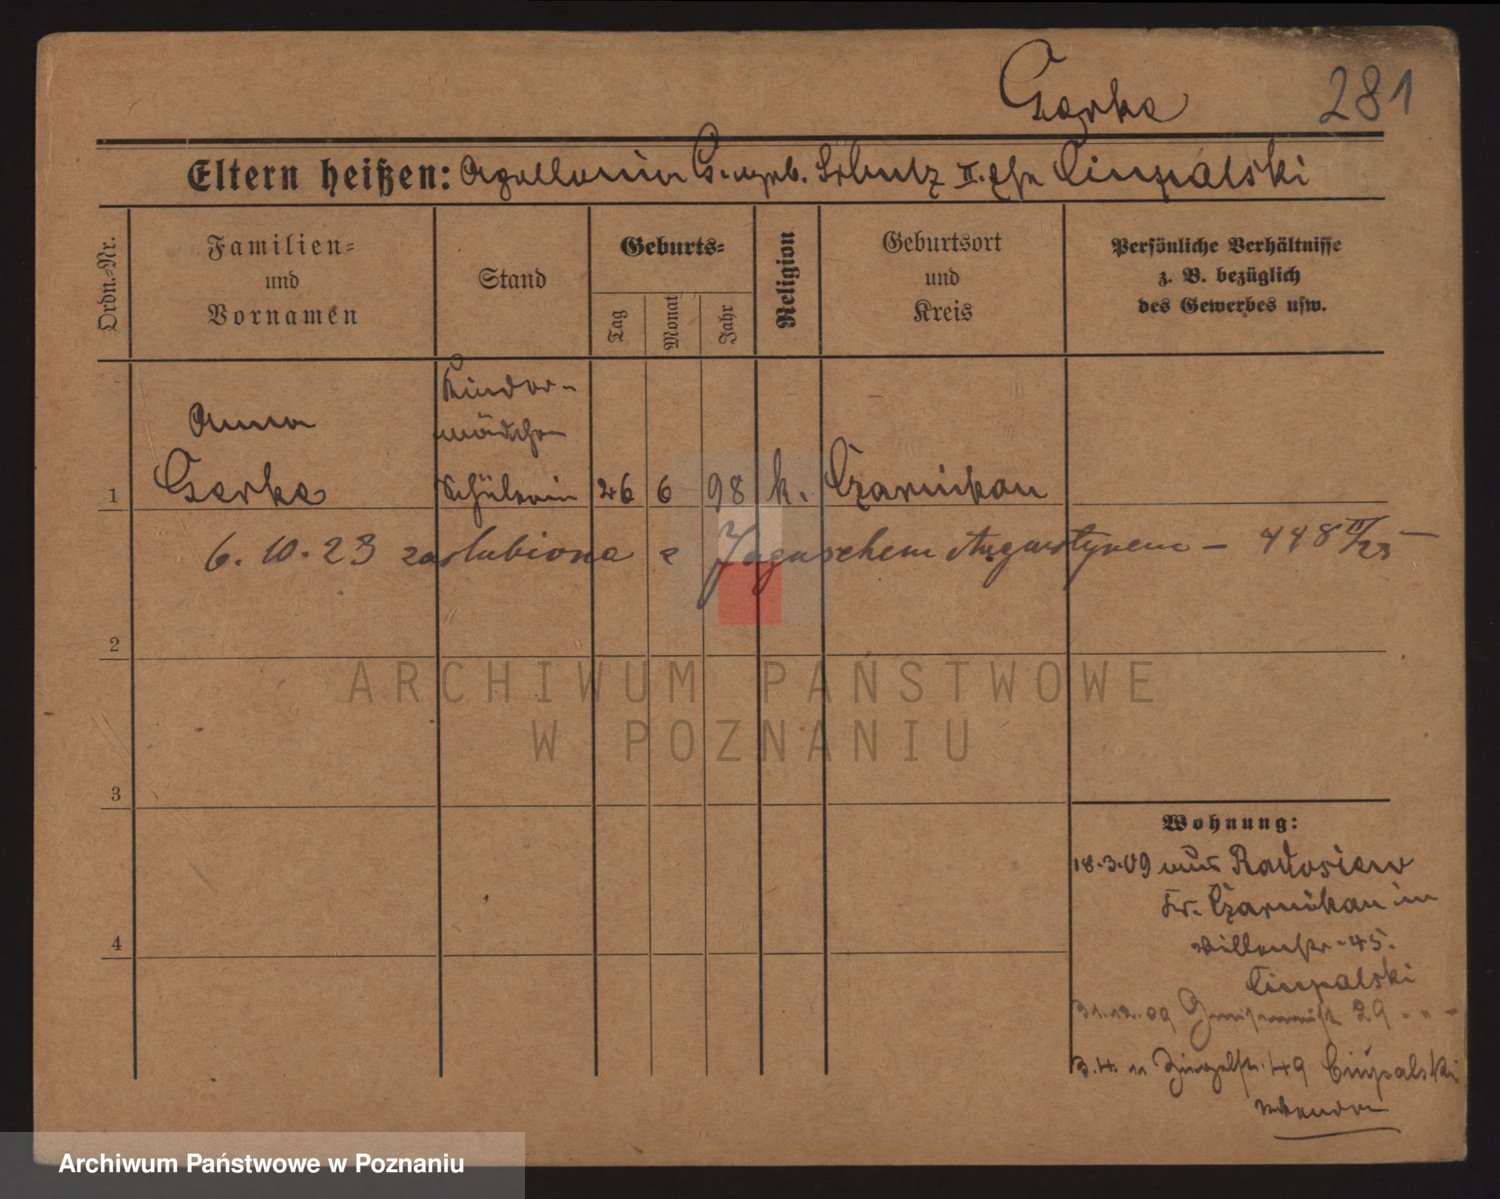 Gerke 281
Eltern heißen: Apollonia G. geb. Schulz II. Ehe Ciupalski
Ordn.-Nr.
Familien-
und
Vornamen
Stand
Geburts-
Tag
Monat
Jahr
Religion
Geburtsort
und
Kreis
Persönliche Verhältnisse
z. B. bezüglich
des Gewerbes usw.
Kinder-
mädchen
Anna
1 Gerke Schülerin 26 6 98 k. Czarnikau
6.10.23 zaślubiona z Jaguschem Augustynem - 448 /23
2
ARCHIWUM PAŃSTWOWE
W POZNANIU
3
Wohnung:
18.3.09 aus Radosiew
Kr. Czarnikau in
45.
Ciupalski
4
31.12.09 29 " "
3.4. 11 49 Ciupalski
Archiwum Państwowe w Poznaniu